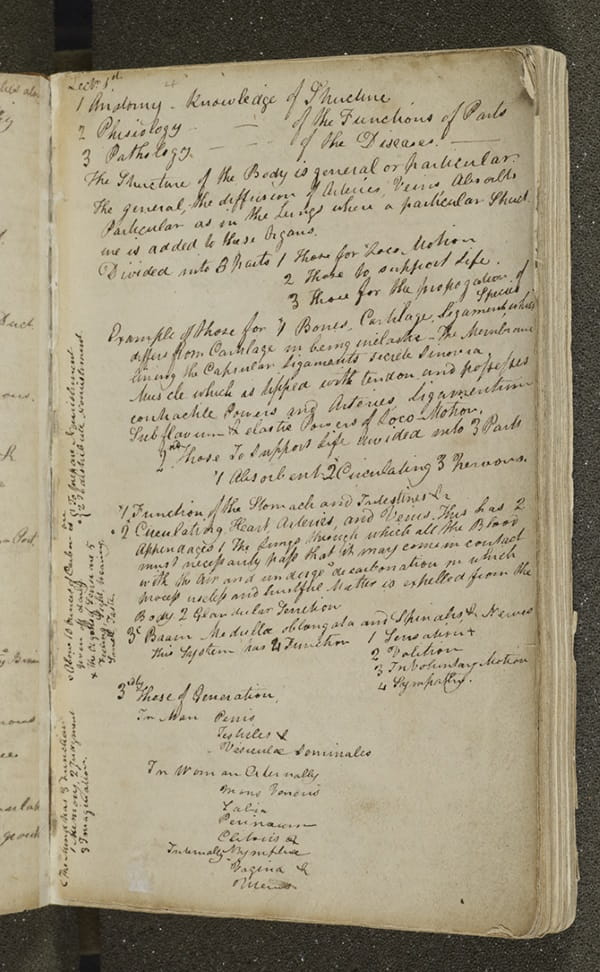 Lect. 1st
1 Anatomy - Knowledge of Structure
2 Phisiology - - of the Functions of Parts
3 Pathology - - of the Diseases.
The Structure of the Body is general or particular.
The general, the diffusion of Arteries, Veins Absorbts
Particular as in the Lungs where a particular Struct
ure is added to these Organs.
Divided into 3 Parts 1 Those for Loco Motion
2 Those to support Life.
3 Those for the propogation of
Species
Example of those for 1 Bones, Cartilage, Ligament which
differs from Cartilage in being inelastic - The Membrane
lining the Capsular Ligaments secrete Sinovia,
Muscle which is tipped with tendon and possesses
contractile Powers and Arteries, Ligamentum
Subflavum & elastic Powers of Loco-Motion.
2nd Those To Support Life divided into 3 Parts
1 Absorbent 2 Circulating 3 Nervous.
1 Function of the Stomach and Intestines &c
2 Circulating, Heart Arteries, and Veins. This has 2
Appendages 1 The Lungs through which all the Blood
must necessarily pass that it may come in contact
with the Air and undergo decarbonation in which
process useless and hurtful Matter is expelled from the
Body 2 Glandular Function
3 Brain Medulla oblongata and Spinalis & Nerves
This System has 4 Function 1 Sensation
2 Volition
3 InVoluntary Motion
4 Sympathy.
3rdly Those of Generation,
In Man Penis
Testicles &
Vesiculæ Seminales
In Woman Externally
Mons Veneris
Labia
Perinæum
Clitoris &
Internally Nymphæ
Vagina &
Uterus
1 To prepare Nourishment
2 To distribute Nourishment
Above 10 Ounces of Carbon are
given off daily
& the Organs of Sense are 5
Feeling, Sight, hearing,
Smell, Taste.
The Mind has 3 Function
1 Memory, 2 Judgment
3 Imagination.